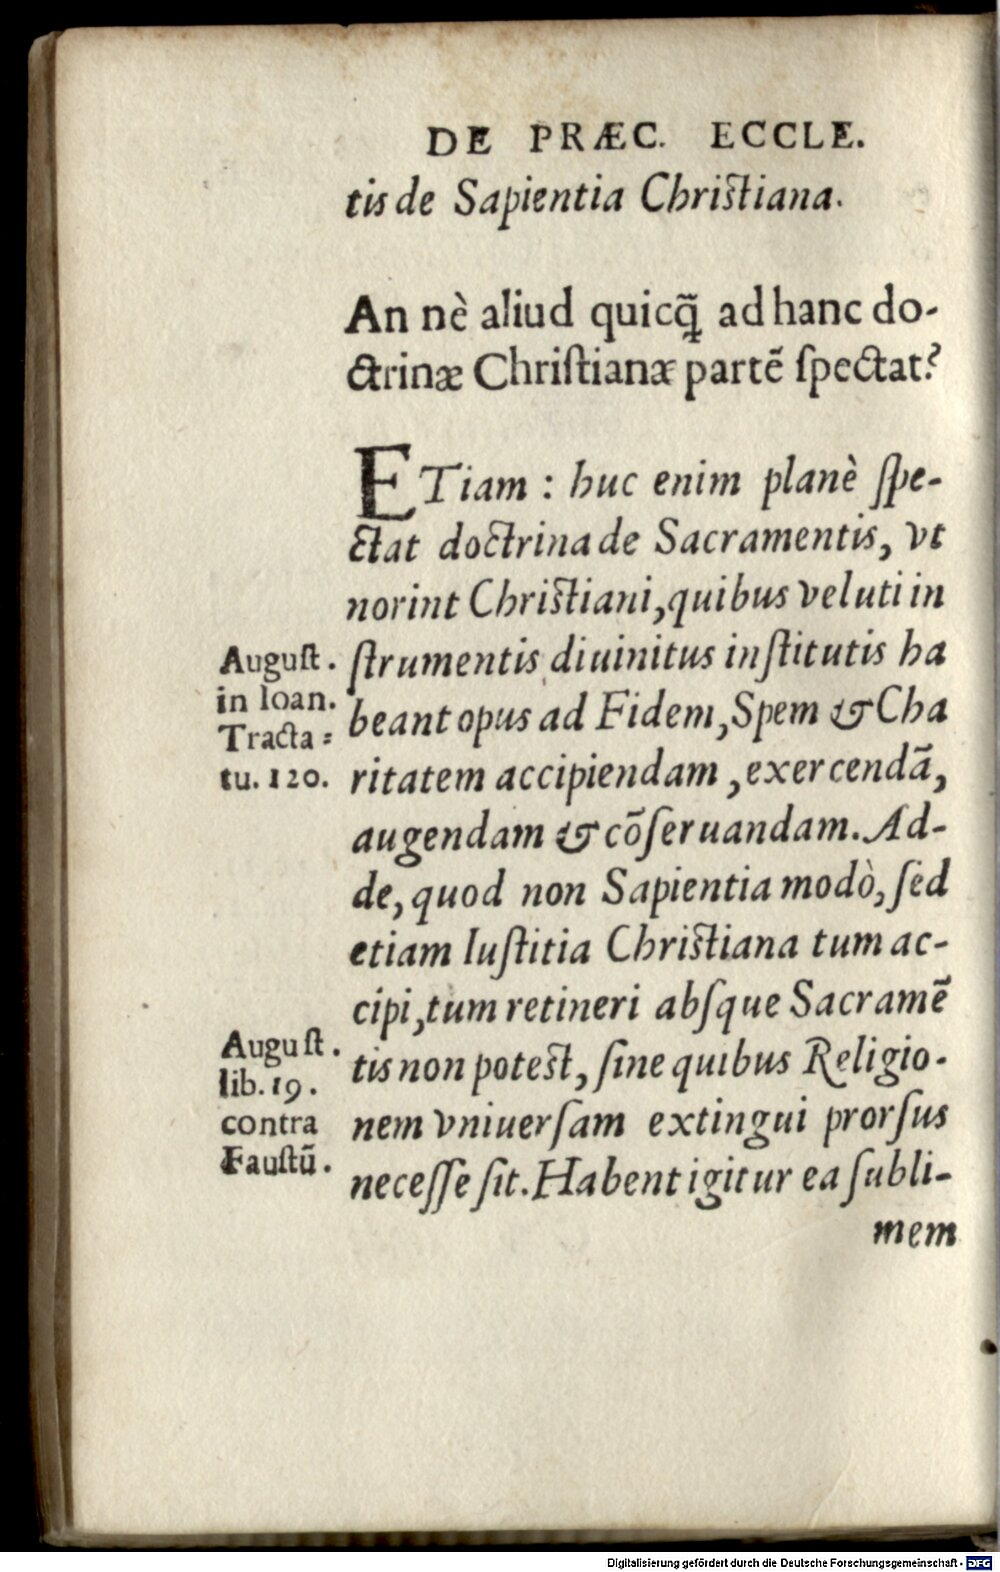 DE PRÆC. ECCLE.
tis de Sapientia Christiana.
An nè aliud quicq̃ ad hanc do-
ctrinæ Christianæ partẽ ſpectat?
ETiam : huc enim planè ſpe-
ctat doctrina de Sacramentis, vt
norint Christiani, quibus veluti in
ſtrumentis diuinitus inſtitutis ha
beant opus ad Fidem, Spem & Cha
ritatem accipiendam, exercendã,
augendam & cõſeruandam. Ad-
de, quod non Sapientia modò, ſed
etiam Iuſtitia Christiana tum ac-
cipi, tum retineri abſque Sacramẽ
tis non potest, ſine quibus Religio-
nem vniuerſam extingui prorſus
neceſſe ſit. Habent igitur ea ſubli-
mem
Auguſt.
in Ioan.
Tracta=
tu. 120.
Auguſt.
lib. 19.
contra
Fauſtũ.
Digitalisierung gefördert durch die Deutsche Forschungsgemeinschaft - DFG